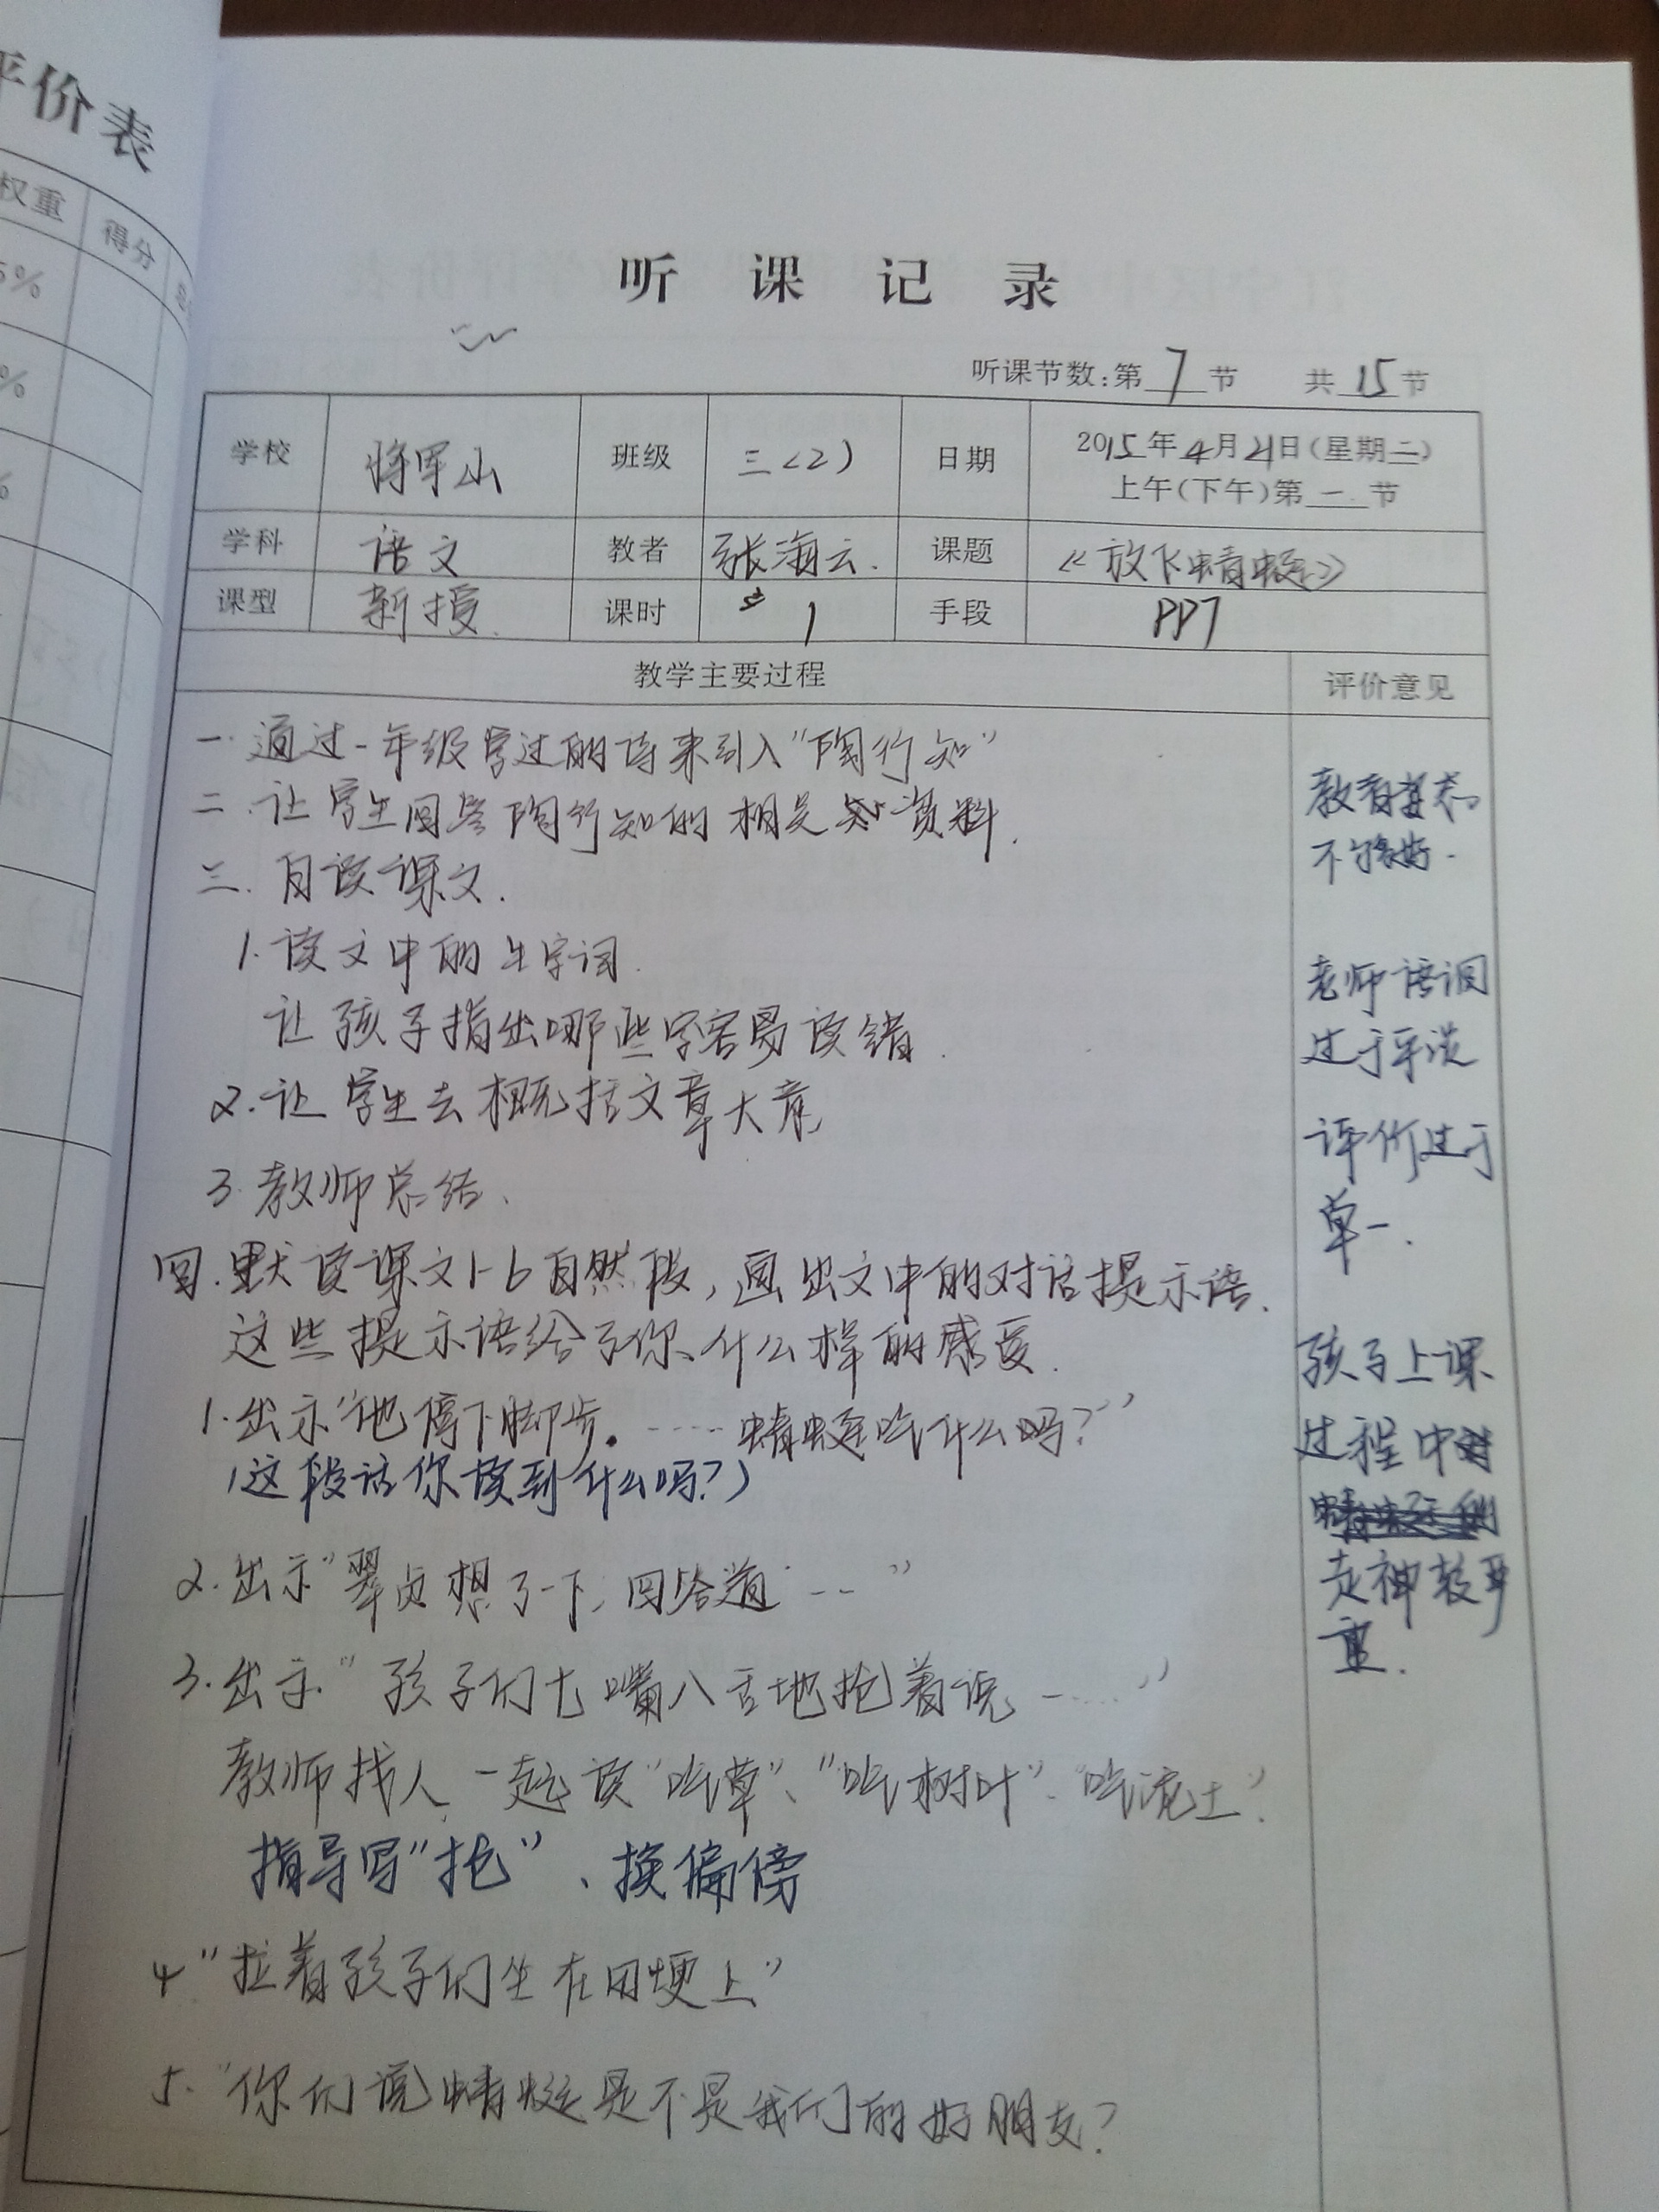 评价表
权重
得分
5%
%
%
听课记录
听课节数:第7节 共15节
学校 将军山 班级 三(2) 日期 2015年4月21日(星期二)
上午(下午)第一节
学科 语文 教者 张海云. 课题 《放飞蜻蜓》
课型 新授. 课时 1 手段 PPT
教学主要过程 评价意见
一.通过一年级学过的诗来引入“陶行知”
二.让学生回答陶行知的相关资料.
三.自读课文.
1.读文中的生字词.
让孩子指出哪些字容易读错.
2.让学生去概括文章大意
3.教师总结、
四.默读课文1-6自然段,画出文中的对话提示语.
这些提示语给了你什么样的感受.
1.出示“他停下脚步。----蜻蜓吃什么吗?”
(这段话你读到什么吗?)
2.出示“翠贞想了一下,回答道---”
3.出示“孩子们七嘴八舌地抢着说-....”
教师找人一起读“吃草”、“吃树叶”、“吃泥土”.
指导写“抢”、换偏傍
4“拉着孩子们坐在田埂上”
5.“你们说蜻蜓是不是我们的好朋友?
教者
不够好.
老师语调
过于平淡
评价过于
单一.
孩子上课
过程中
走神较严
重.